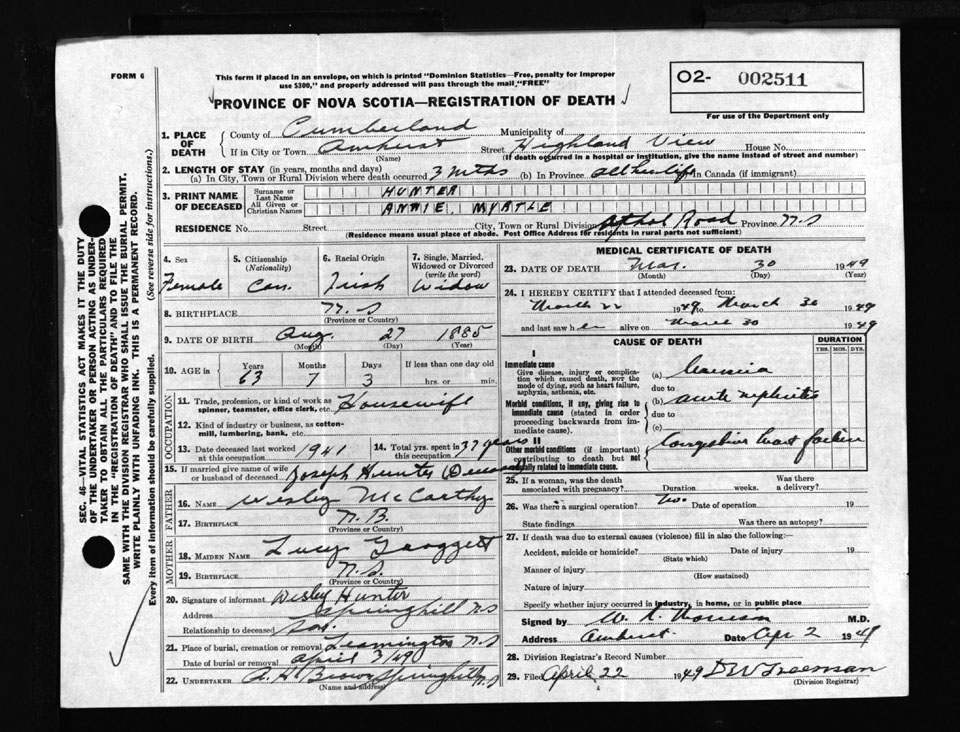 FORM 6
This form if placed in an envelope, on which is printed "Dominion Statistics—Free, penalty for improper
use $300," and properly addressed will pass through the mail "FREE"
PROVINCE OF NOVA SCOTIA—REGISTRATION OF DEATH
O2- 002511
For use of the Department only
SEC. 46—VITAL STATISTICS ACT MAKES IT THE DUTY
OF THE UNDERTAKER OR PERSON ACTING AS UNDER-
TAKER TO OBTAIN ALL THE PARTICULARS REQUIRED
IN THE "REGISTRATION OF DEATH" AND TO FILE THE
SAME WITH THE DIVISION REGISTRAR WHO SHALL ISSUE THE BURIAL PERMIT.
WRITE PLAINLY WITH UNFADING INK. THIS IS A PERMANENT RECORD.
Every item of information should be carefully supplied. (See reverse side for instructions.)
1. PLACE OF DEATH
County of Cumberland Municipality of
If in City or Town Amherst Street Highland View House No.
(Name) (If death occurred in a hospital or institution, give the name instead of street and number)
2. LENGTH OF STAY (in years, months and days)
(a) In City, Town or Rural Division where death occurred 3 mths (b) In Province all her life In Canada (if immigrant)
3. PRINT NAME OF DECEASED
Surname or Last Name HUNTER
All Given or Christian Names ANNIE MYRTLE
RESIDENCE No. Street City, Town or Rural Division Athol Road Province N.S
(Residence means usual place of abode. Post Office Address for residents in rural parts not sufficient)
4. Sex Female
5. Citizenship (Nationality) Can.
6. Racial Origin Irish
7. Single, Married, Widowed or Divorced (write the word) Widow
8. BIRTHPLACE N.S
(Province or Country)
9. DATE OF BIRTH Aug. 27 1885
(Month) (Day) (Year)
10. AGE in Years 63 Months 7 Days 3 If less than one day old hrs. or min.
OCCUPATION
11. Trade, profession, or kind of work as spinner, teamster, office clerk, etc. Housewife
12. Kind of industry or business, as cotton-mill, lumbering, bank, etc.
13. Date deceased last worked at this occupation 1941
14. Total yrs. spent in this occupation 37 years
15. If married give name of wife or husband of deceased Joseph Hunter
FATHER
16. NAME Wesley McCarthy
17. BIRTHPLACE N.B.
(Province or Country)
MOTHER
18. MAIDEN NAME Lucy
19. BIRTHPLACE N.S.
(Province or Country)
20. Signature of informant Wesley Hunter
Address Springhill NS
Relationship to deceased Son.
21. Place of burial, cremation or removal Leamington N.S
Date of burial or removal April 3/49
22. UNDERTAKER A. H. Brown Springhill N.S
(Name and address)
MEDICAL CERTIFICATE OF DEATH
23. DATE OF DEATH Mar. 30 1949
(Month) (Day) (Year)
24. I HEREBY CERTIFY that I attended deceased from:
March 22 1949 to March 30 1949
and last saw her alive on March 30 1949
CAUSE OF DEATH
DURATION
YRS. MOS. DYS.
I
Immediate cause
Give disease, injury or complication which caused death, NOT the mode of dying, such as heart failure, asphyxia, asthenia, etc.
(a)
due to
Morbid conditions, if any, giving rise to immediate cause (stated in order proceeding backwards from immediate cause).
(b) acute nephritis
due to
(c)
II
Other morbid conditions (if important) contributing to death but not causally related to immediate cause.
congestive heart failure
25. If a woman, was the death associated with pregnancy? Duration weeks. Was there a delivery?
26. Was there a surgical operation? No. Date of operation 19
State findings Was there an autopsy?
27. If death was due to external causes (violence) fill in also the following:—
Accident, suicide or homicide? Date of injury 19
(State which)
Manner of injury
(How sustained)
Nature of injury
Specify whether injury occurred in industry, in home, or in public place
Signed by M.D.
Address Amherst. Date Apr 2 1949
28. Division Registrar's Record Number
29. Filed April 22 1949 D W Freeman
(Division Registrar)